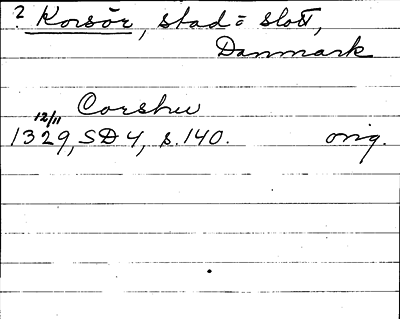 ? Korsör, stad = slott,
Danmark
Corshu
12/11
1329, SD 4, s. 140. orig.